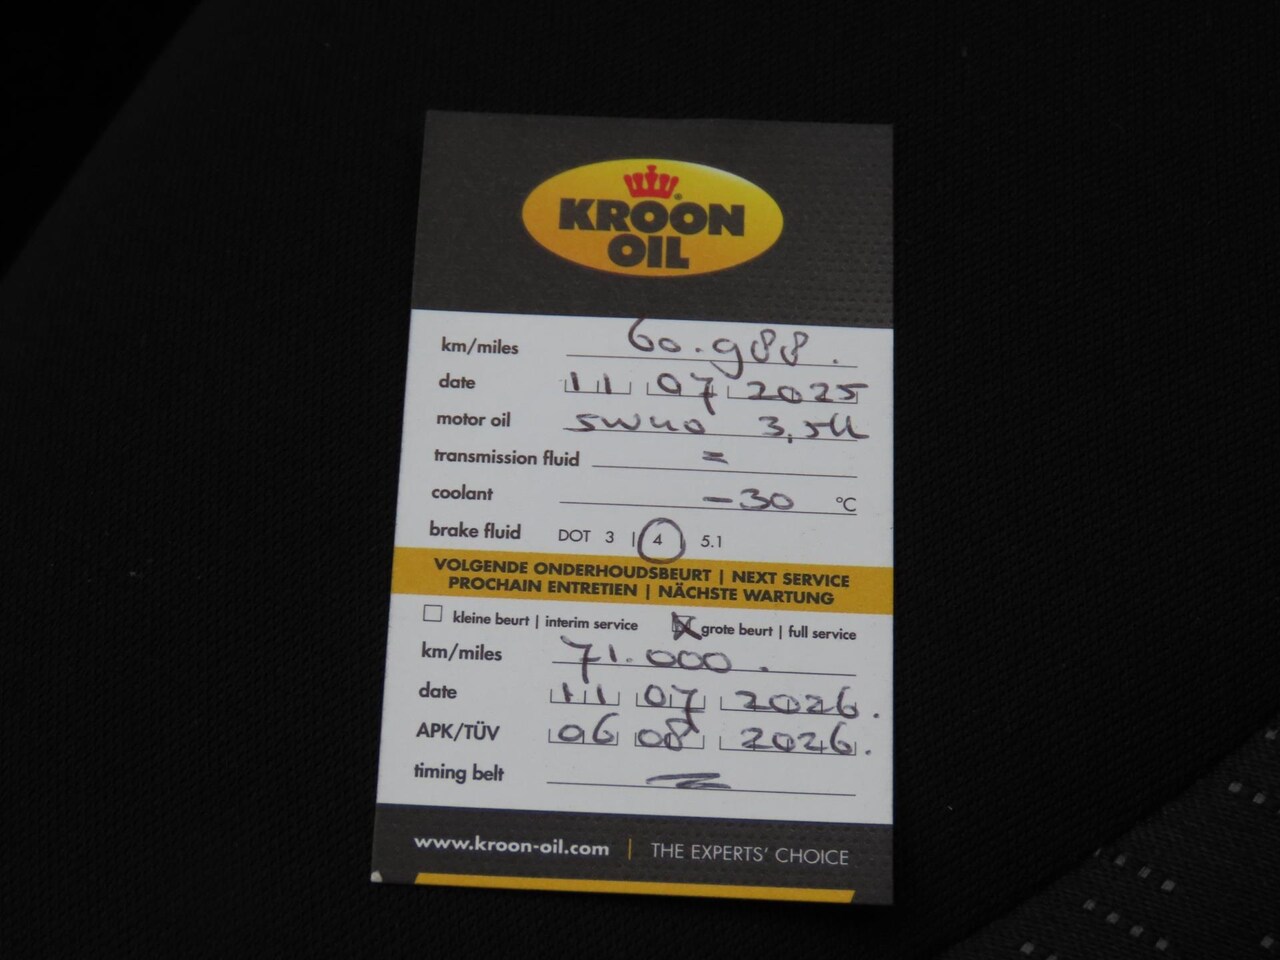 KROON
OIL
km/miles 60.988.
date 11 07 2025
motor oil 5W40 3,5L
transmission fluid =
coolant -30 °C
brake fluid DOT 3 | 4 | 5.1
VOLGENDE ONDERHOUDSBEURT | NEXT SERVICE
PROCHAIN ENTRETIEN | NÄCHSTE WARTUNG
kleine beurt | interim service grote beurt | full service
km/miles 71.000.
date 11 07 2026.
APK/TÜV 06 08 2026.
timing belt
www.kroon-oil.com | THE EXPERTS' CHOICE